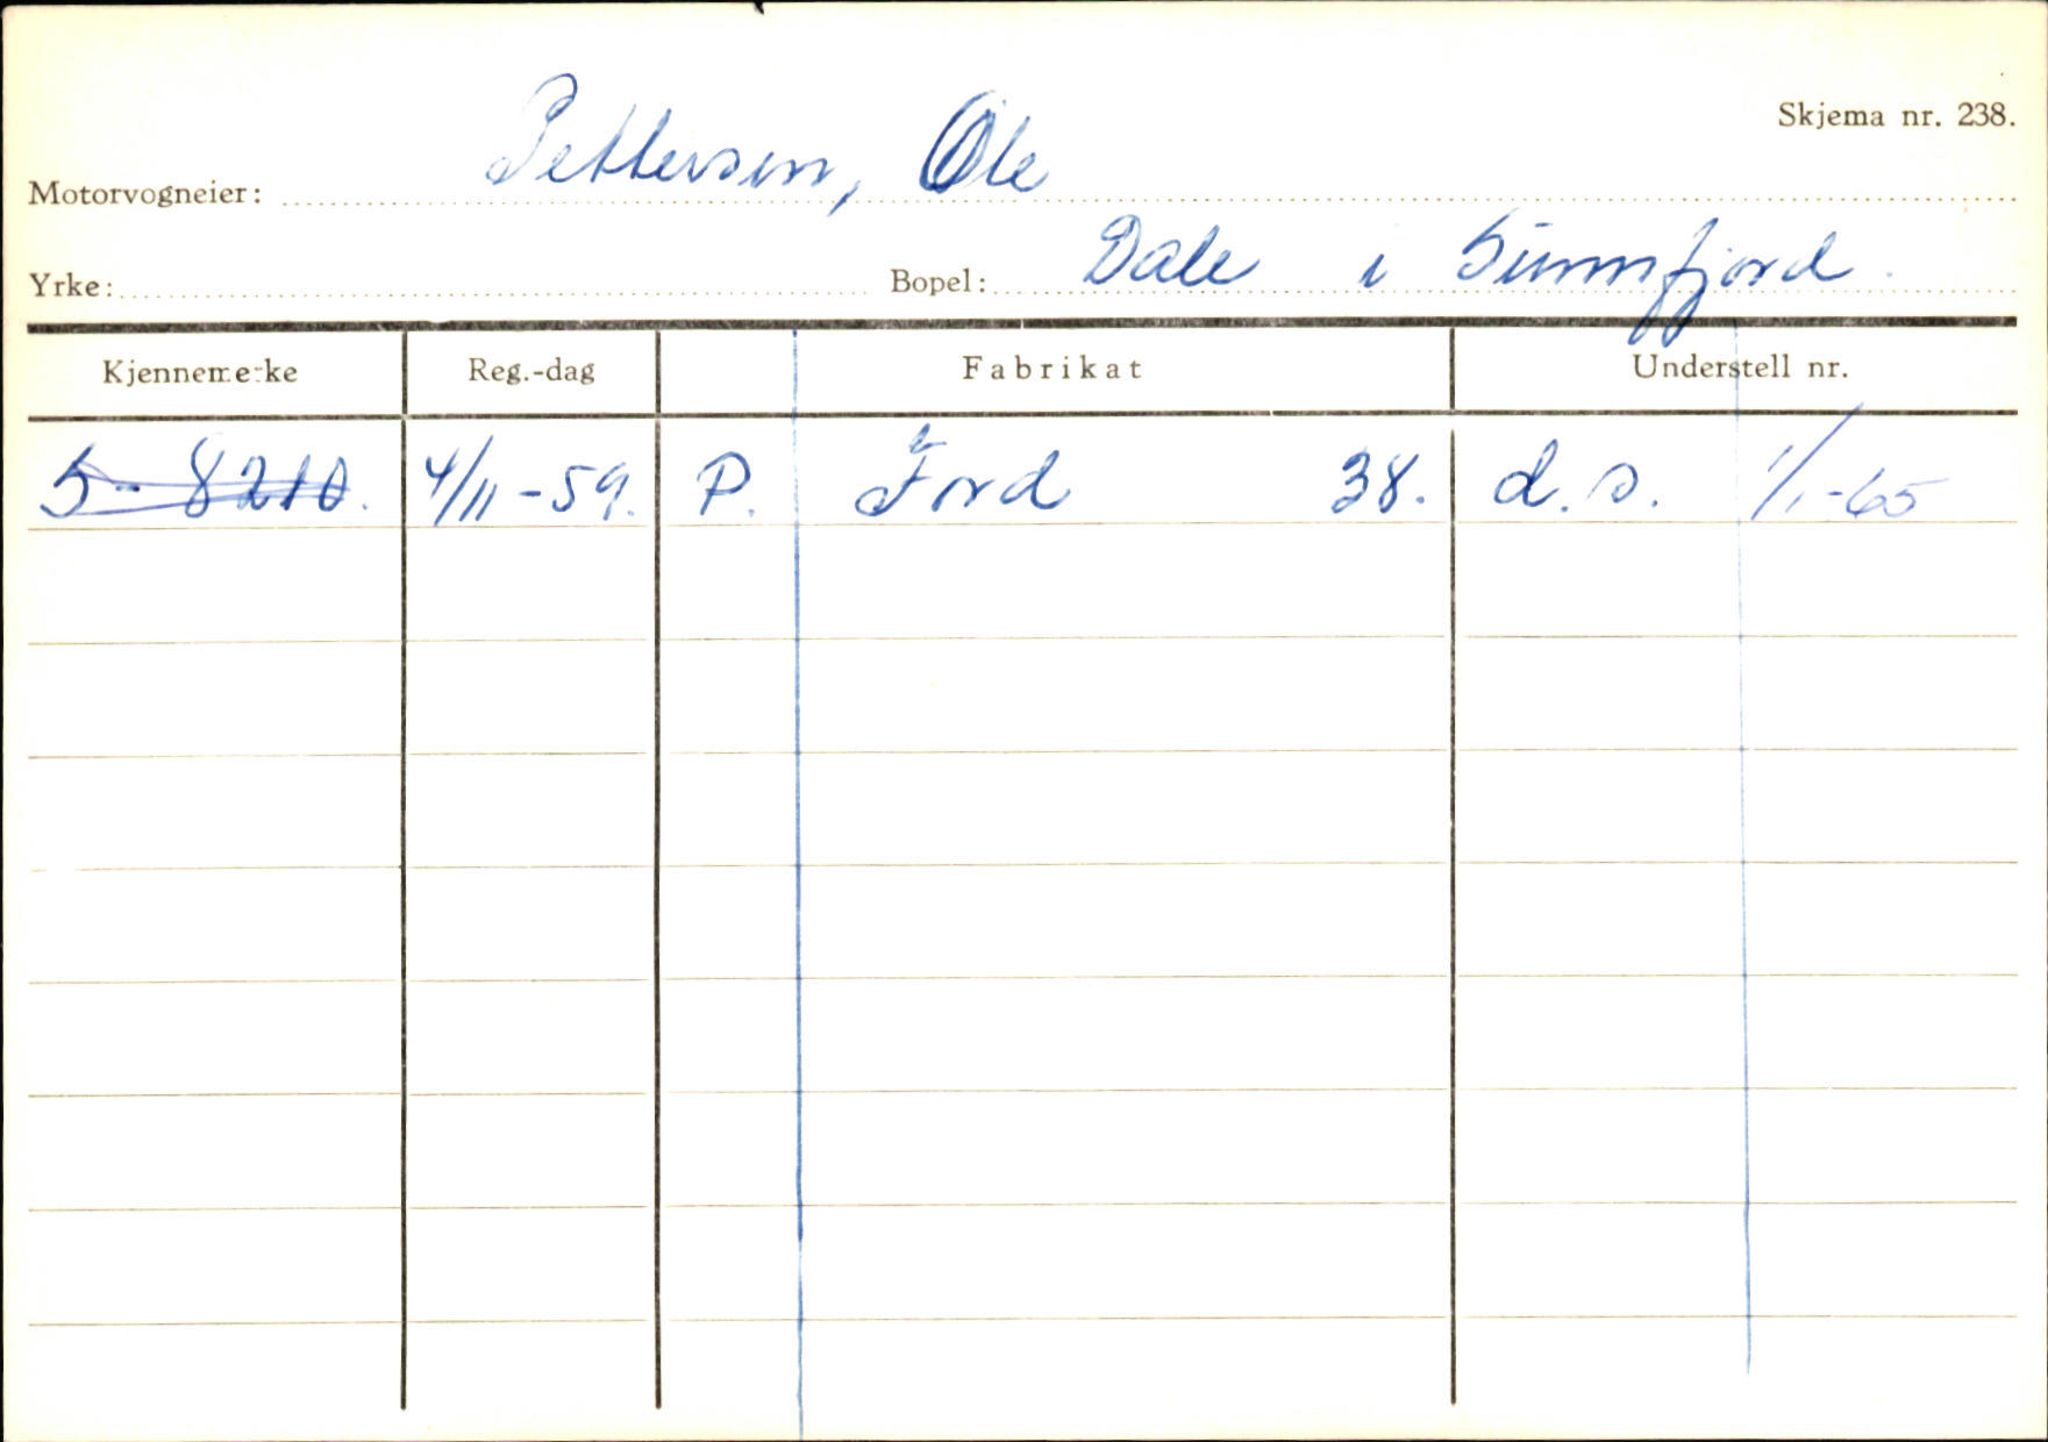 Skjema nr. 238.
Motorvogneier: Pettersen, Ole
Yrke: Bopel: Dale i Sunnfjord.
Kjennemerke Reg.-dag Fabrikat Understell nr.
S-8210. 4/11-59. P. Ford 38. d.s. 1/1-65